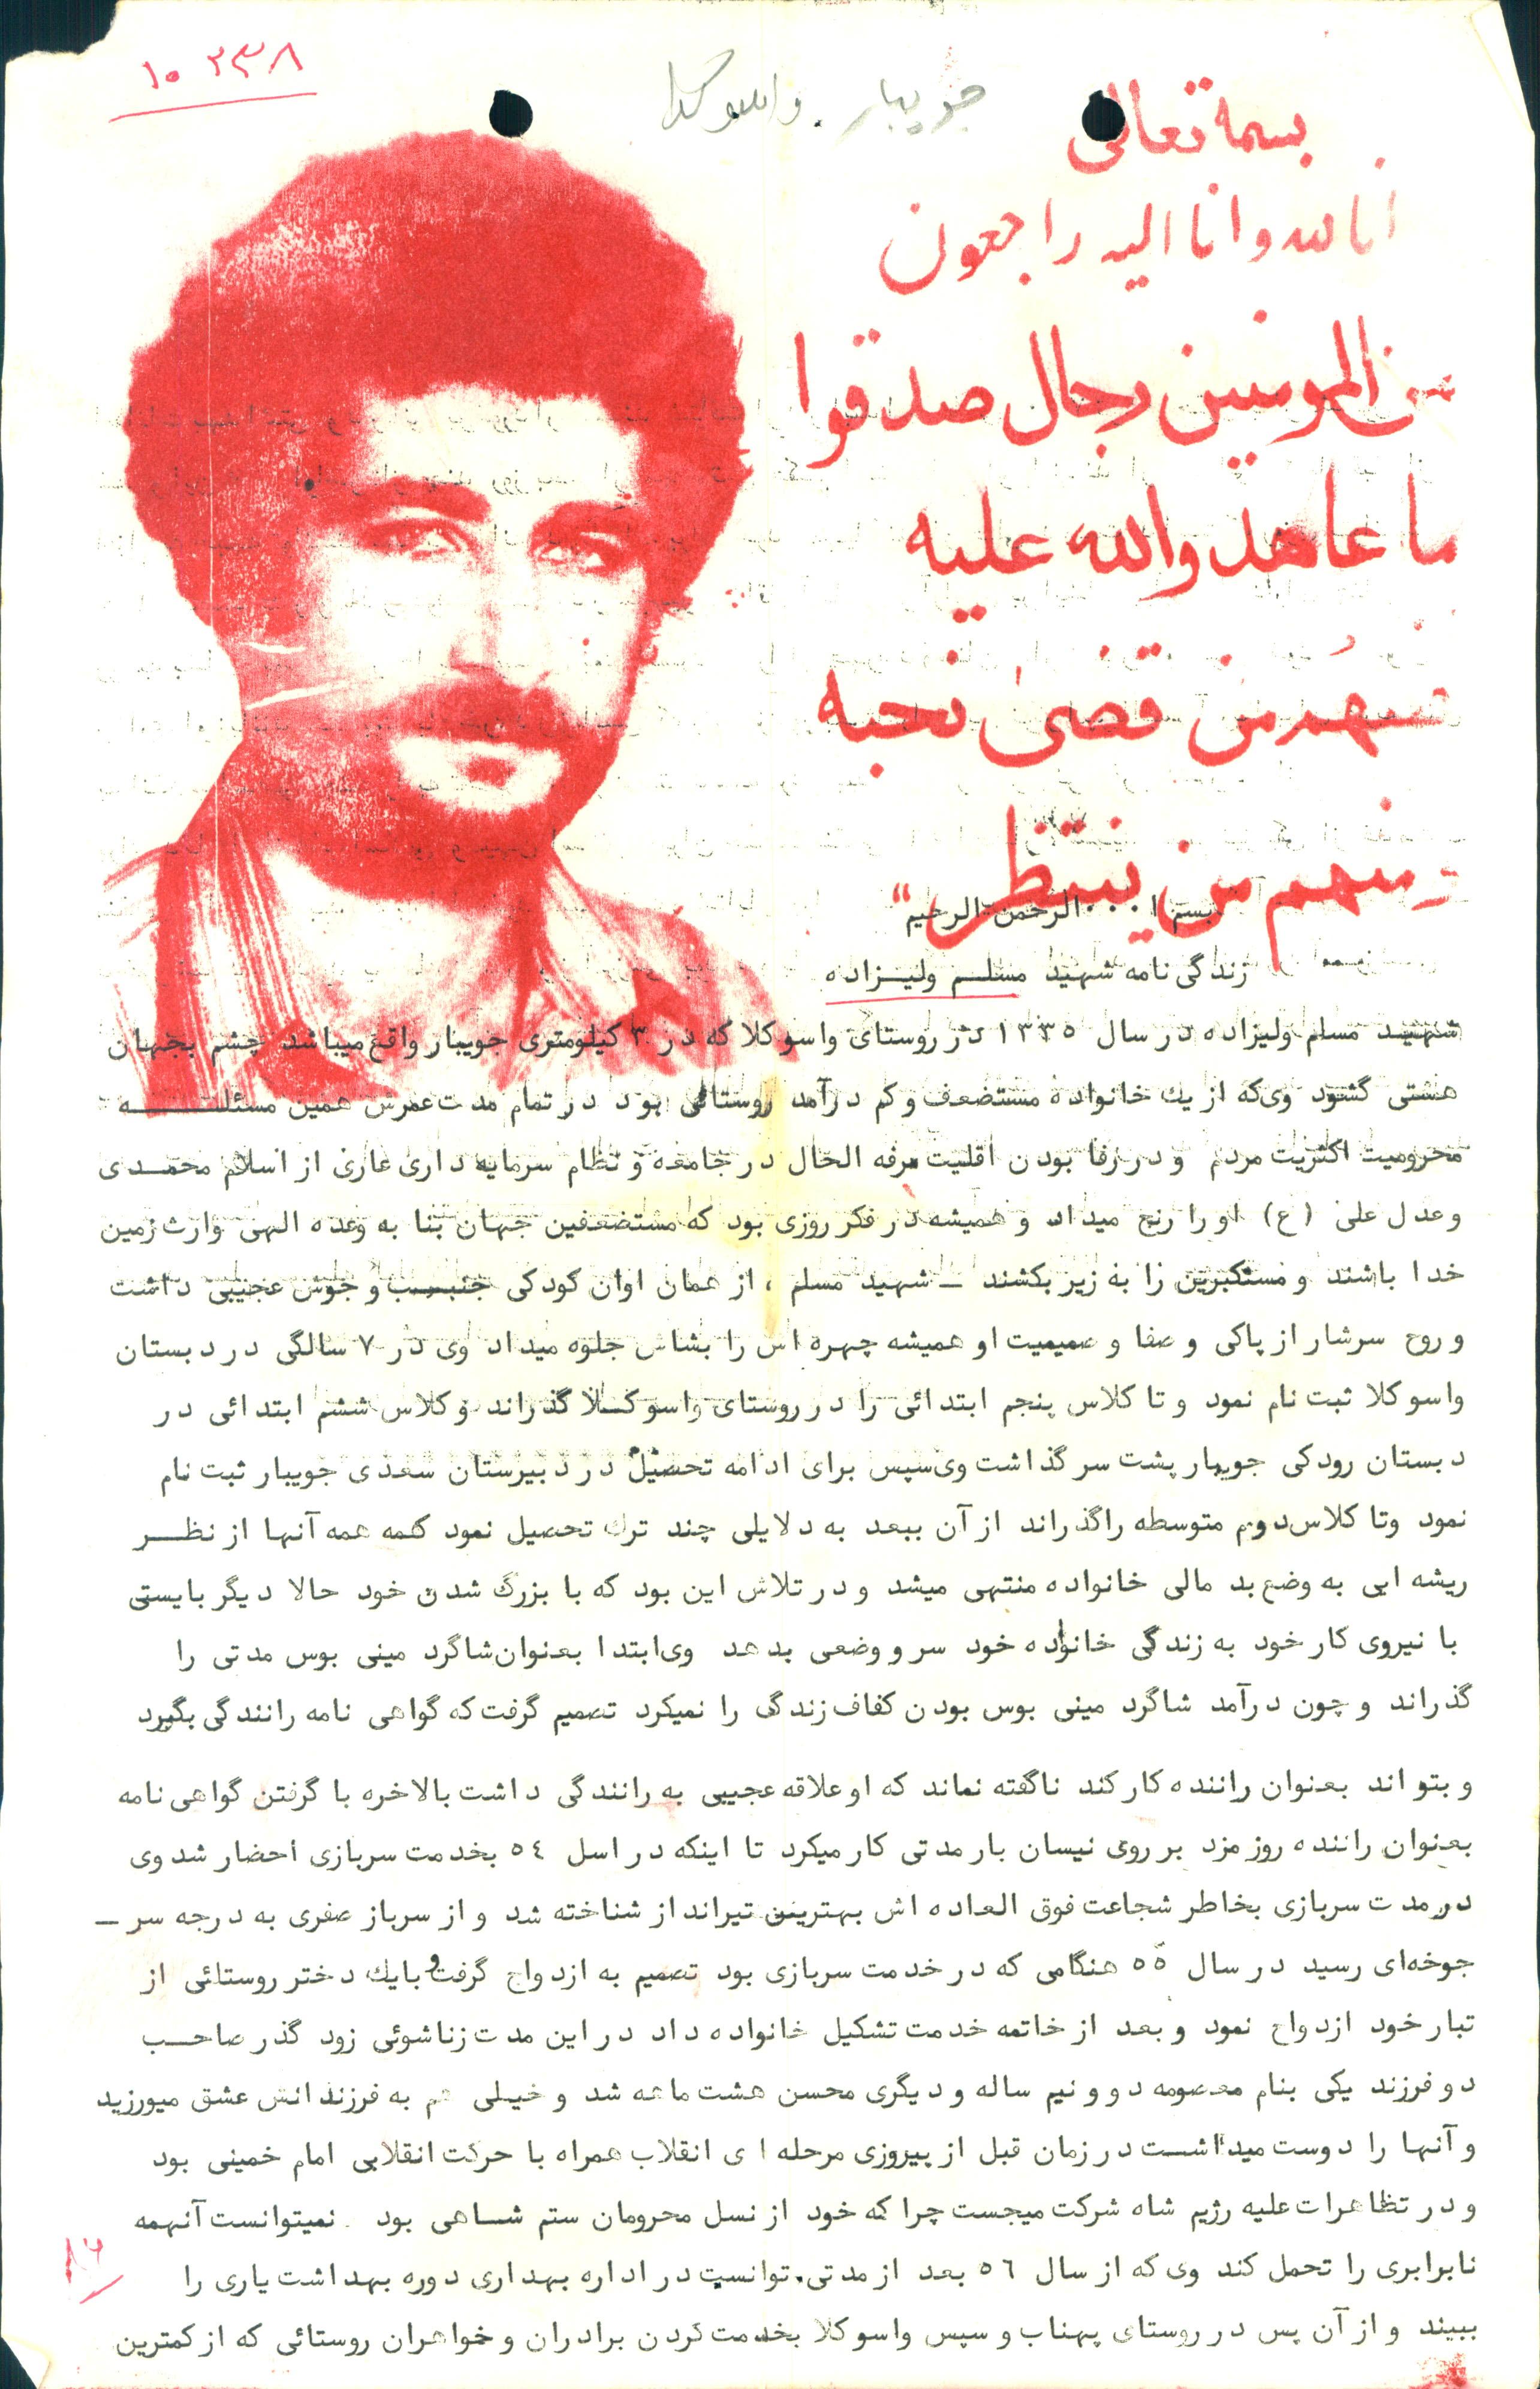 ۱۰۲۳۸
جویبار. واسوکلا
بسمه تعالی
انا لله وانا الیه راجعون
من المومنین رجال صدقوا
ما عاهدوالله علیه
فمنهم من قضی نحبه
و منهم من ینتظر"
بسم ا... الرحمن الرحیم
زندگی نامه شهید مسلم ولیزاده
شهید مسلم ولیزاده در سال ۱۳۳۵ در روستای واسوکلا که در ۳ کیلومتری جویبار واقع میباشد چشم بجهان
هستی گشود وی که از یك خانواده مستضعف و کم درآمد روستائی بود در تمام مدت عمرش همین مسئله
محرومیت اکثریت مردم و در رفا بودن اقلیت مرفه الحال در جامعه و نظام سرمایه داری عاری از اسلام محمدی
و عدل علی (ع) او را رنج میداد و همیشه در فکر روزی بود که مستضعفین جهان بنا به وعده الهی وارث زمین
خدا باشند و مستکبرین را به زیر بکشند — شهید مسلم ، از همان اوان کودکی جنب و جوش عجیبی داشت
و روح سرشار از پاکی و صفا و صمیمیت او همیشه چهره اش را بشاش جلوه میداد وی در ۷ سالگی در دبستان
واسوکلا ثبت نام نمود و تا کلاس پنجم ابتدائی را در روستای واسوکلا گذراند و کلاس ششم ابتدائی در
دبستان رودکی جویبار پشت سر گذاشت وی سپس برای ادامه تحصیل در دبیرستان سعدی جویبار ثبت نام
نمود وتا کلاس دوم متوسطه راگذراند از آن ببعد به دلایلی چند ترك تحصیل نمود کمه همه آنها از نظر
ریشه ایی به وضع بد مالی خانواده منتهی میشد و در تلاش این بود که با بزرگ شدن خود حالا دیگر بایستی
با نیروی کار خود به زندگی خانواده خود سر و وضعی بدهد وی ابتدا بعنوان شاگرد مینی بوس مدتی را
گذراند و چون درآمد شاگرد مینی بوس بودن کفاف زندگی را نمیکرد تصمیم گرفت که گواهی نامه رانندگی بگیرد
و بتواند بعنوان راننده کار کند ناگفته نماند که او علاقه عجیبی به رانندگی داشت بالاخره با گرفتن گواهی نامه
بعنوان راننده روزمزد بر روی نیسان بار مدتی کار میکرد تا اینکه در اسل ۵٤ بخدمت سربازی احضار شد وی
در مدت سربازی بخاطر شجاعت فوق العاده اش بهترین تیرانداز شناخته شد و از سرباز صفری به درجه سر —
جوخه‌ای رسید در سال ۵۵ هنگامی که در خدمت سربازی بود تصمیم به ازدواج گرفت و بایك دختر روستائی از
تبار خود ازدواج نمود و بعد از خاتمه خدمت تشکیل خانواده داد در این مدت زناشوئی زود گذر صاحب
دو فرزند یکی بنام معصومه دو و نیم ساله و دیگری محسن هشت ماهه شد و خیلی هم به فرزندانش عشق میورزید
و آنها را دوست میداشت در زمان قبل از پیروزی مرحله ای انقلاب همراه با حرکت انقلابی امام خمینی بود
و در تظاهرات علیه رژیم شاه شرکت میجست چرا که خود از نسل محرومان ستم شاهی بود . نمیتوانست آنهمه
نابرابری را تحمل کند وی که از سال ۵٦ بعد از مدتی. توانست در اداره بهداری دوره بهداشت یاری را
ببیند و از آن پس در روستای پهناب و سپس واسوکلا بخدمت کردن برادران و خواهران روستائی که از کمترین